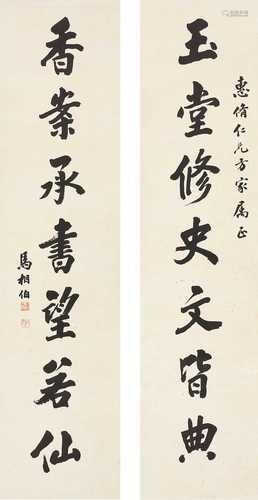 惠脩仁兄方家属正
玉堂修史文皆典
香案承書望若仙
馬相伯